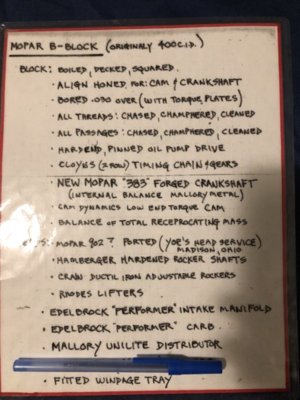 MOPAR B-BLOCK (ORIGINALY 400C.I.D.)
BLOCK: BOILED, DECKED, SQUARED.
· ALIGN HONED FOR: CAM & CRANKSHAFT
· BORED .030 OVER (WITH TORQUE PLATES)
· ALL THREADS: CHASED, CHAMPHERED, CLEANED
· ALL PASSAGES: CHASED, CHAMPHERED, CLEANED
· HARDEND, PINNED OIL PUMP DRIVE
· CLOYES (2 ROW) TIMING CHAIN & GEARS
· NEW MOPAR "383" FORGED CRANKSHAFT
(INTERNAL BALANCE MALLORY METAL)
· CAM DYNAMICS LOW END TORQUE CAM
· BALANCE OF TOTAL RECEPROCATING MASS
MOPAR 902? PORTED (YOE'S HEAD SERVICE)
MADISON, OHIO
· HAMBERGER HARDENED ROCKER SHAFTS
· CRANE DUCTIL IRON ADJUSTABLE ROCKERS
· RHODES LIFTERS
· EDELBROCK "PERFORMER" INTAKE MANIFOLD
· EDELBROCK "PERFORMER" CARB.
· MALLORY UNILITE DISTRIBUTOR
· FITTED WINDAGE TRAY